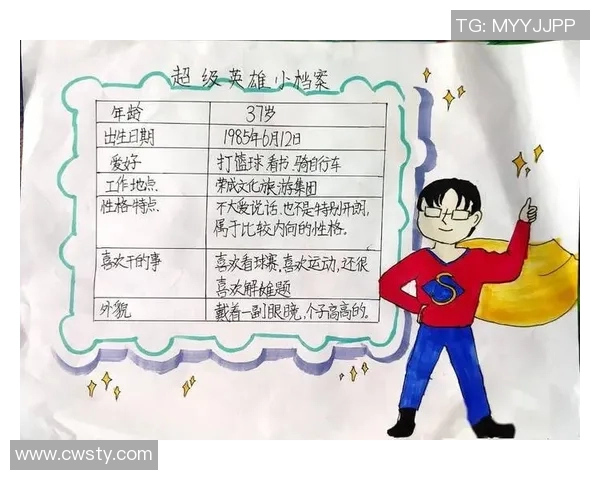 TG: MYYJJPP
超级英雄小档案
年龄 37岁
出生日期 1985年6月12日
爱好 打篮球 看书 骑自行车
工作地点 荣成文化旅游集团
性格特点 不大爱说话.也不是特别开朗,
属于比较内向的性格.
喜欢干的事 喜欢看球赛,喜欢运动,还很
喜欢解难题
外貌 戴着一副眼镜,个子高高的.
S
www.cwsty.com